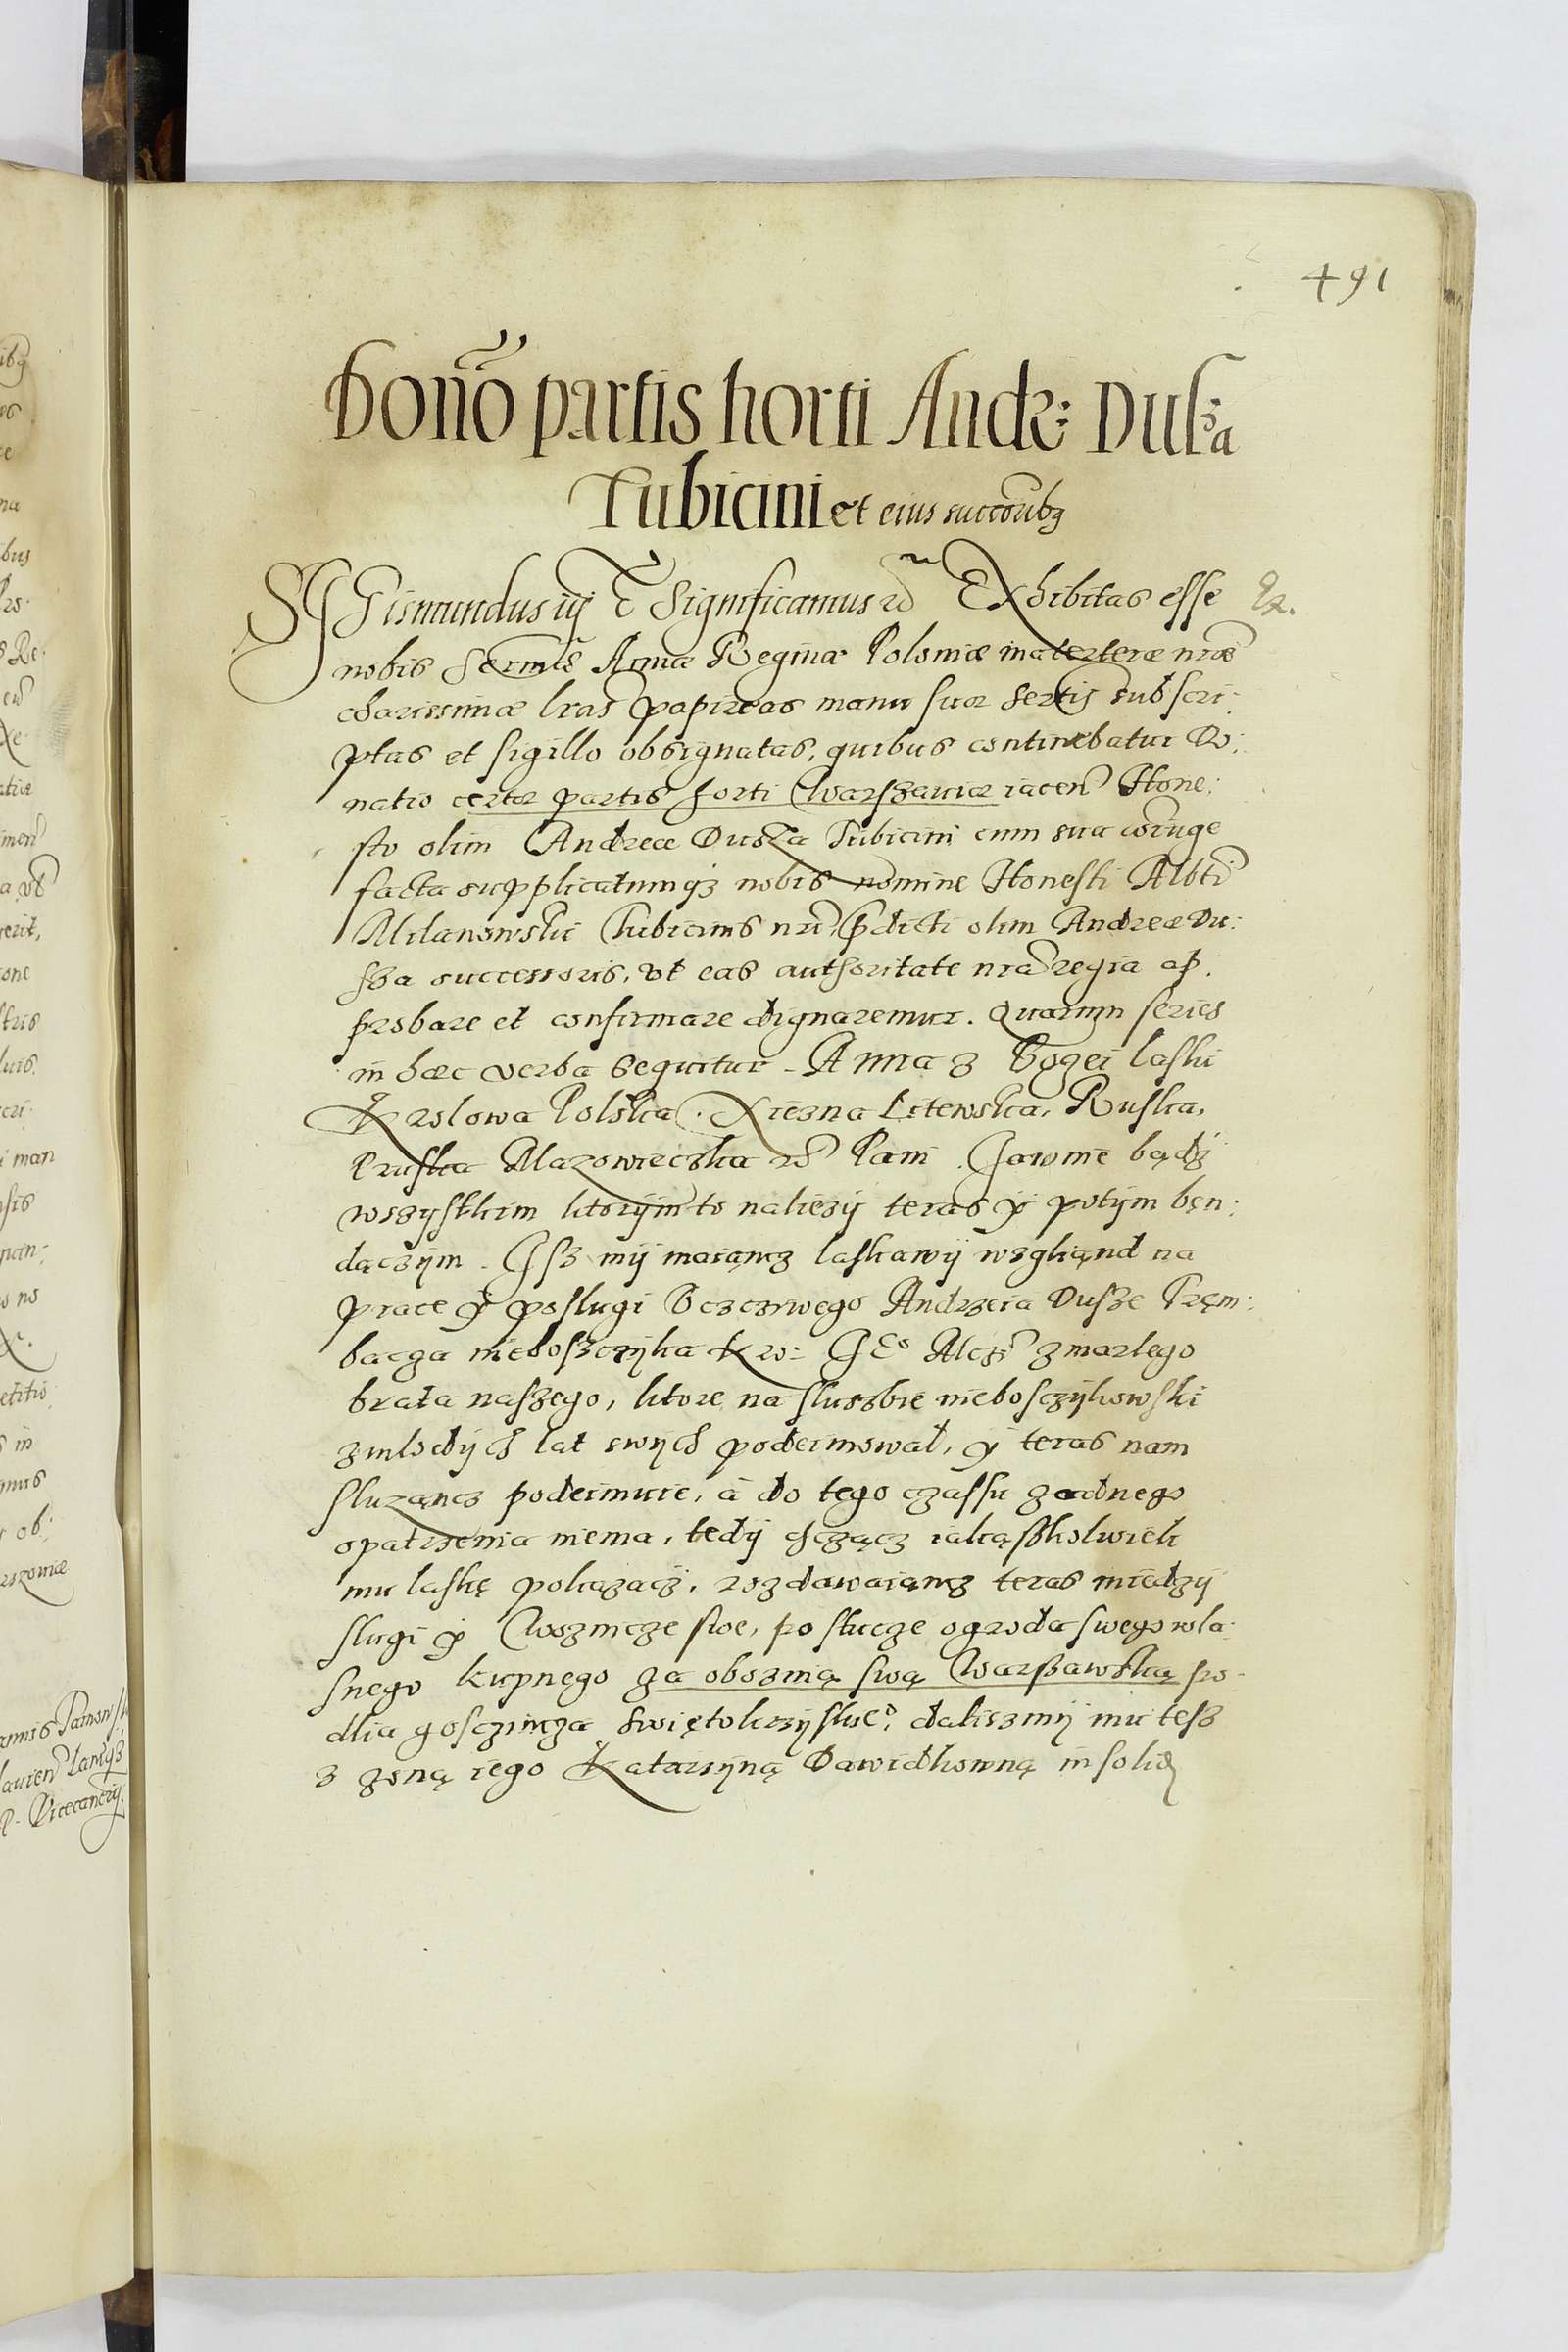 491
Donno partis horti Andr: Dusza
Tubicini et eius succorib9
SIGismundus iij etc Significamus etc Exhibitas esse
nobis Sermae Annae Reginae Poloniae materterae nrae
charissimae lras papireas manu suae Sertis subscri:
ptas et sigillo obsignatas, quibus continebatur Do:
natio certae partis horti Warszauiae iacen Hone:
sto olim Andreae Dusza Tubicini cum sua coniuge
facta supplicatumq3 nobis nomine Honesti Albti
Milanowski Tubicinis nri, pdicti olim Andreae Du:
sza successoris, vt eas authoritate nra regia ap:
probare et confirmare dignaremur. Quarum series
in haec verba sequitur - Anna z Bozei laski
Krolowa Polska. Xiezna Litewska, Ruska,
Pruska Mazowieczka etc Pani. Jawnie bądź
wszystkim ktorym to nalieży teras y potym bęn:
dączym. Jsz my maiącz laskawy wzgliąnd na
prace y poslugi Uczczywego Andrzeia Dusze Tręm:
bacza nieboszczyka Kro: JEo Mczi zmarlego
brata naszego, ktore na sluszbie nieboszczykowski
zmlodych lat swych podeimowal, y teras nam
sluzącz podeimuie, á do tego czassu zadnego
opatrzenia niema, tedy chczącz iakąszkolwiek
mu laskę pokazacz, rozdawaiącz teras miedzy
slugi y Woznicze swe, po sztucze ogroda swego wla:
snego kupnego za oboznią swą Warszawską po:
dlia gosczincza swiętokrzyskieo, daliszmy mu tesz
z zoną iego Katarzyną Dawidkowną in solid